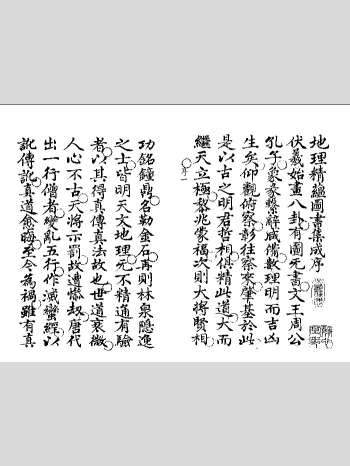 地理精蘊圖書集成序
伏羲始畫八卦有圖无書文王周公
孔子彖象繫辭咸備數理明而吉凶
生矣仰觀俯察彰往察來肇基於此
是以古之明君哲相俱精此道大而
繼天立極黎兆蒙福次則大將賢相
序一
功銘鐘鼎名勒金石再則林泉隱逸
之士皆明天文地理元不精通有驗
者以其得真傳真法故也世道衰微
人心不古天將示罰故遭慘劫唐代
出一行僧者變亂五行作滅蠻經以
訛傳訛真道愈晦至今為禍雖有真